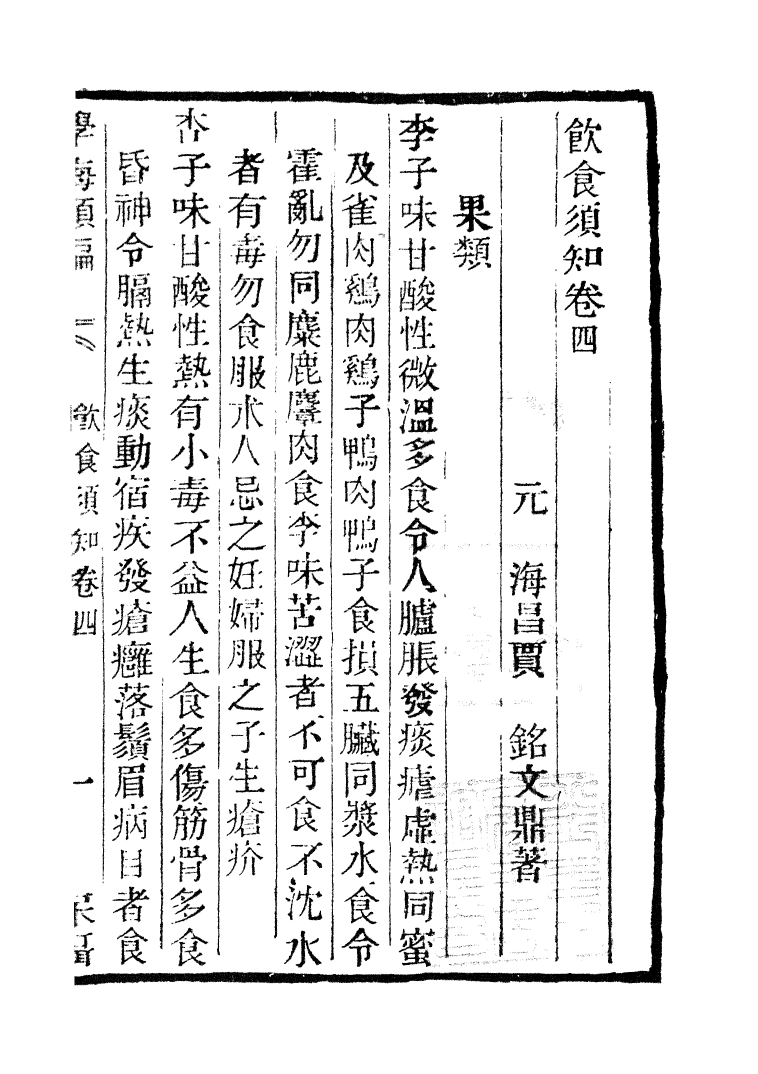 飲食須知卷四
元　海昌賈　銘文鼎著
果類
李子味甘酸性微溫多食令人臚脹發痰瘧虛熱同蜜
及雀肉鷄肉鷄子鴨肉鴨子食損五臟同漿水食令
霍亂勿同麋鹿麞肉食李味苦澀者不可食不沈水
者有毒勿食服朮人忌之妊婦服之子生瘡疥
杏子味甘酸性熱有小毒不益人生食多傷筋骨多食
昏神令膈熱生痰動宿疾發瘡癰落鬚眉病目者食
學海類編　飲食須知卷四　一